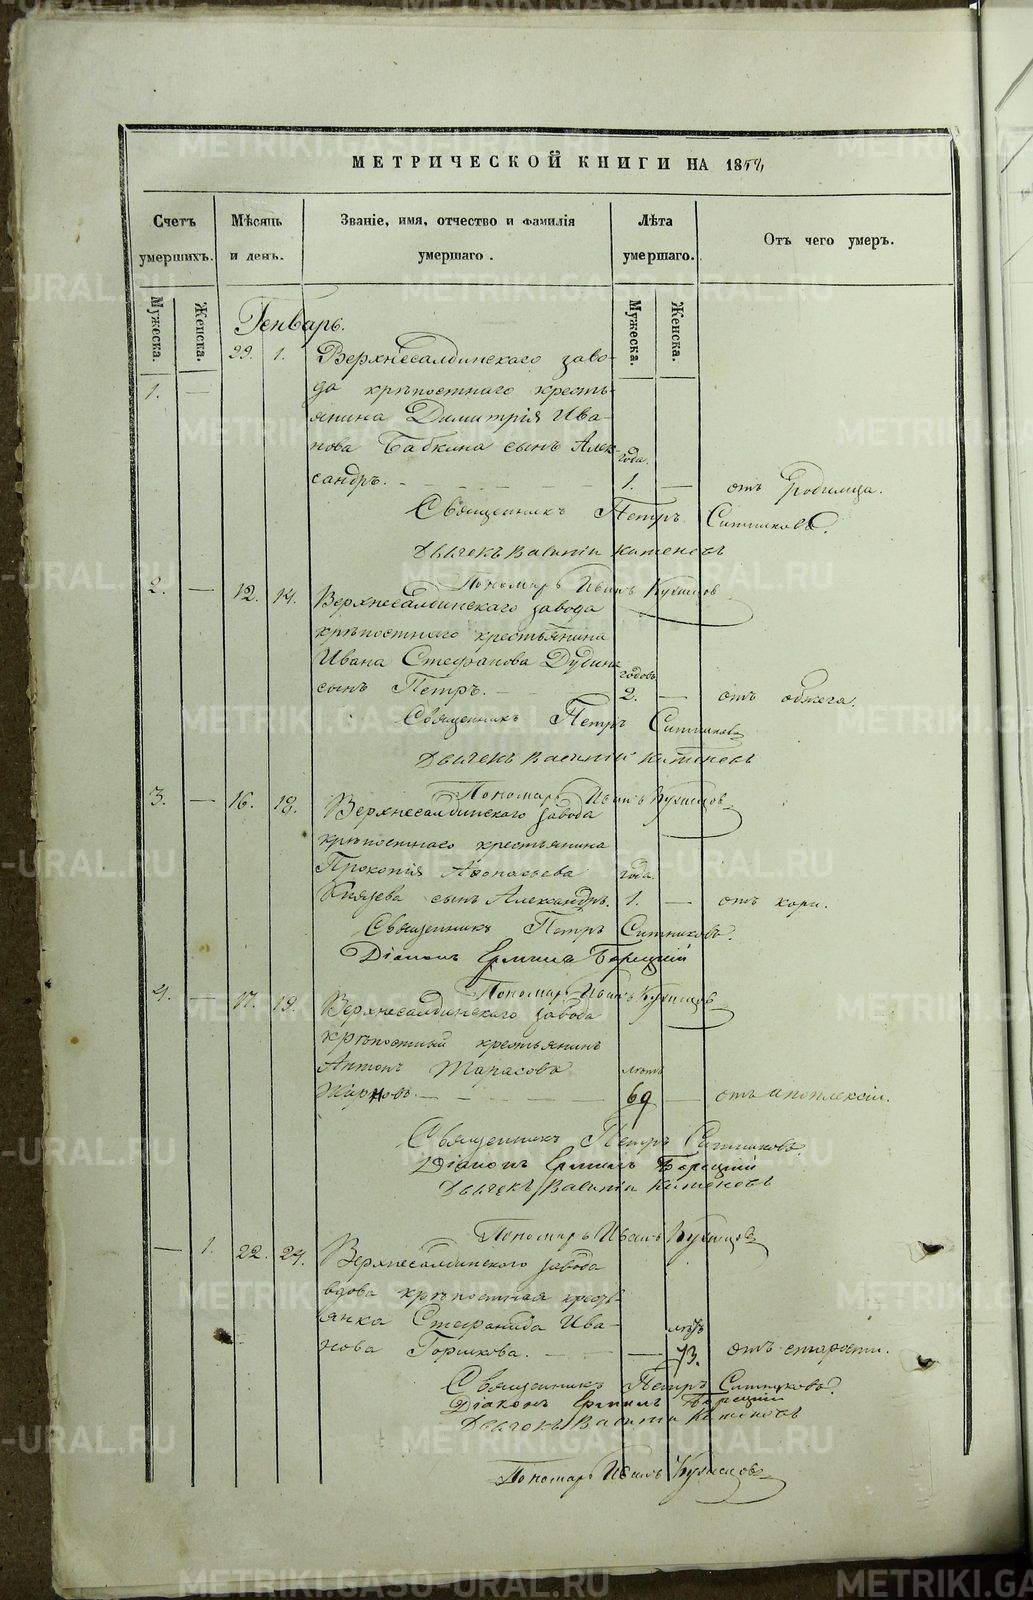 МЕТРИЧЕСКОЙ КНИГИ НА 1858
Счетъ умершихъ.
Мѣсяцъ и день.
Званіе, имя, отчество и фамилія умершаго.
Лѣта умершаго.
Отъ чего умеръ.
Мужеска. Женска.
Мужеска. Женска.
Генварь.
29. 1. Верхнесалдинскаго заво-
1. — да крѣпостнаго кресть-
янина Димитрія Ива-
нова Бабкина сынъ Алек- года.
сандръ. 1. — отъ Родимца.
Священникъ Петръ Ситниковъ.
Дьячекъ Василій
Пономарь Иванъ Кузнецов
2. — 12. 14. Верхнесалдинскаго завода
крѣпостнаго крестьянина
Ивана Стефанова Дудина годовъ
сынъ Петръ. 2. — отъ обжега.
Священникъ Петръ Ситников
Дьячекъ Василій
Пономарь Иванъ Кузнецов
3. — 16. 18. Верхнесалдинскаго завода
крѣпостнаго крестьянина
Прокопія Афонасьева года.
Князева сынъ Александръ. 1. — отъ кори.
Священникъ Петръ Ситниковъ.
Діаконъ Ермилъ Борецкій
Пономарь Иванъ Кузнецов
4. — 17. 19. Верхнесалдинскаго завода
крѣпостный крестьянинъ
Антонъ Тарасовъ лѣтъ
69 — отъ апоплексіи.
Священникъ Петръ Ситниковъ
Діаконъ Ермилъ Борецкій
Дьячекъ Василій
Пономарь Иванъ Кузнецов
— 1. 22. 24. Верхнесалдинскаго завода
вдова крѣпостная кресть-
янка Стефанида Ива- лѣтъ
нова Горшкова. — 73. отъ старости.
Священникъ Петръ Ситниковъ.
Діаконъ Ермилъ Борецкій
Дьячекъ Василій
Пономарь Иванъ Кузнецов
METRIKI.GASO-URAL.RU